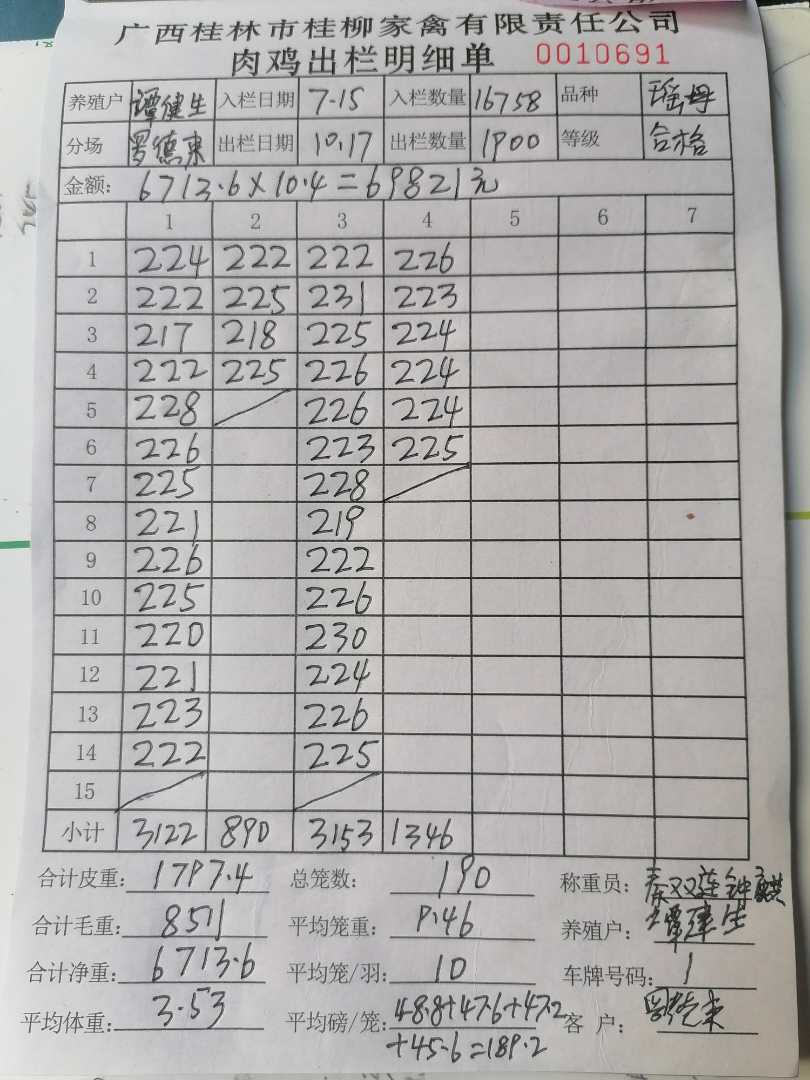 广西桂林市桂柳家禽有限责任公司
肉鸡出栏明细单 0010691
养殖户 谭健生 入栏日期 7-15 入栏数量 16758 品种 瑶母
分场 罗德来 出栏日期 10.17 出栏数量 1900 等级 合格
金额: 6713.6×10.4=69821元
1 2 3 4 5 6 7
1 224 222 222 226
2 222 225 231 223
3 217 218 225 224
4 222 225 226 224
5 228 226 224
6 226 223 225
7 225 228
8 221 219
9 226 222
10 225 226
11 220 230
12 221 224
13 223 226
14 222 225
15
小计 3122 890 3153 1346
合计皮重: 1797.4 总笼数: 190 称重员:
合计毛重: 8511 平均笼重: 9.46 养殖户: 谭健生
合计净重: 6713.6 平均笼/羽: 10 车牌号码: 1
平均体重: 3.53 平均磅/笼: 48.8+47.6+47.2 客 户:
+45.6=189.2